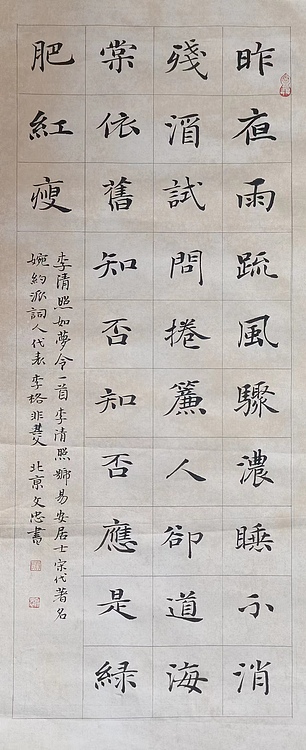 昨夜雨疏風驟濃睡不消
殘酒試問捲簾人卻道海
棠依舊知否知否應是綠
肥紅瘦
李清照如夢令一首李清照號易安居士宋代著名
婉約派詞人代表李格非其父北京文忠書